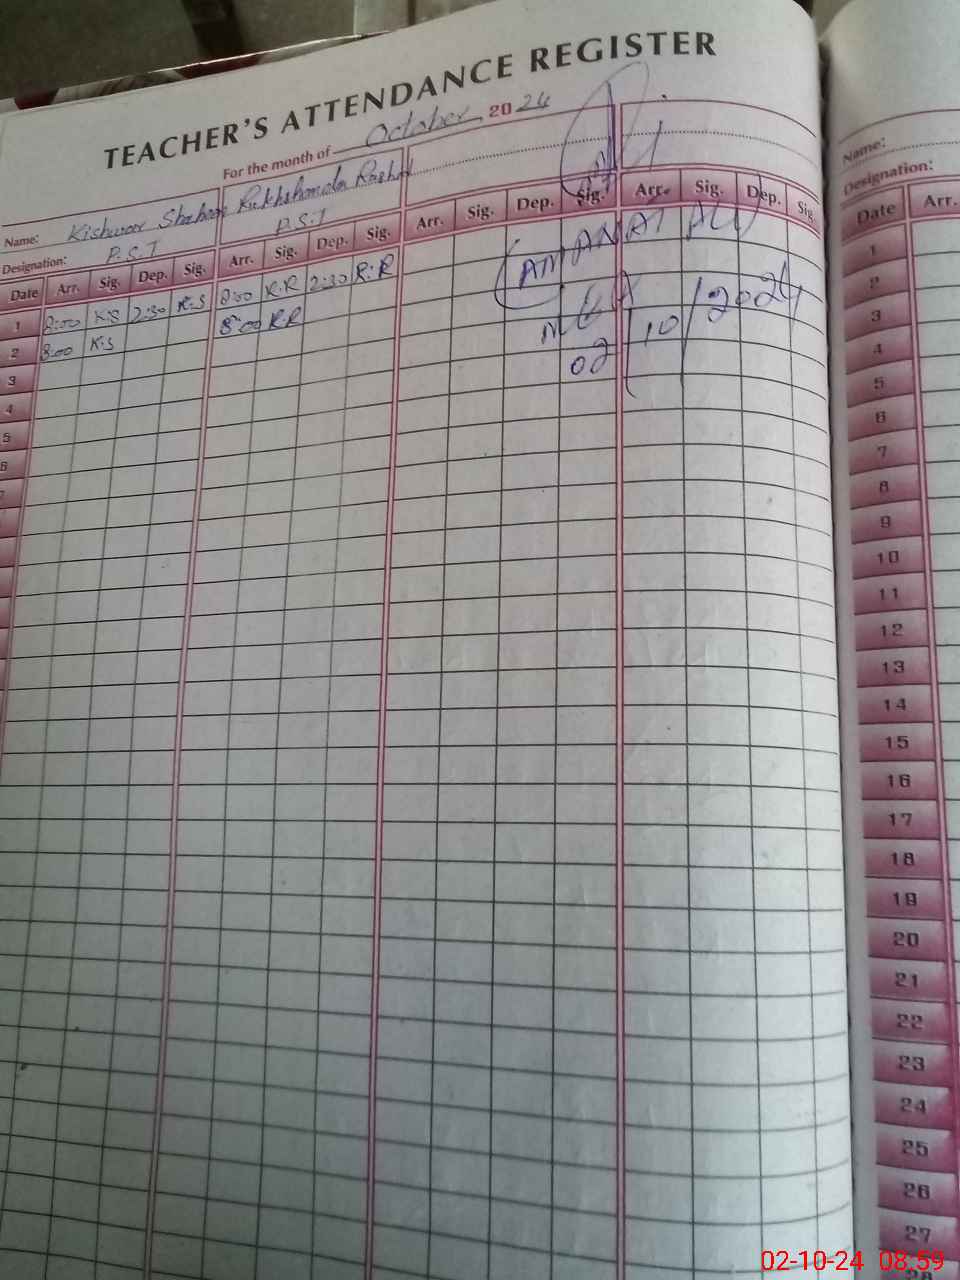 TEACHER'S ATTENDANCE REGISTER
For the month of October 2024
Name: Kishwar Shaheen Rukhshanda Rashid
Designation: P.S.T P.S.T
Date Arr. Sig. Dep. Sig. Arr. Sig. Dep. Sig. Arr. Sig. Dep. Sig. Arr. Sig. Dep. Sig.
1 8:00 K.S 2:30 K.S 8:00 R.R 2:30 R.R
2 8:00 K.S 8:00 R.R
3
4
5
6
7
AMANAT ALI
MEA
02/10/2024
Name:
Designation:
Date Arr.
1
2
3
4
5
6
7
8
9
10
11
12
13
14
15
16
17
18
19
20
21
22
23
24
25
26
27
02-10-24 08:59